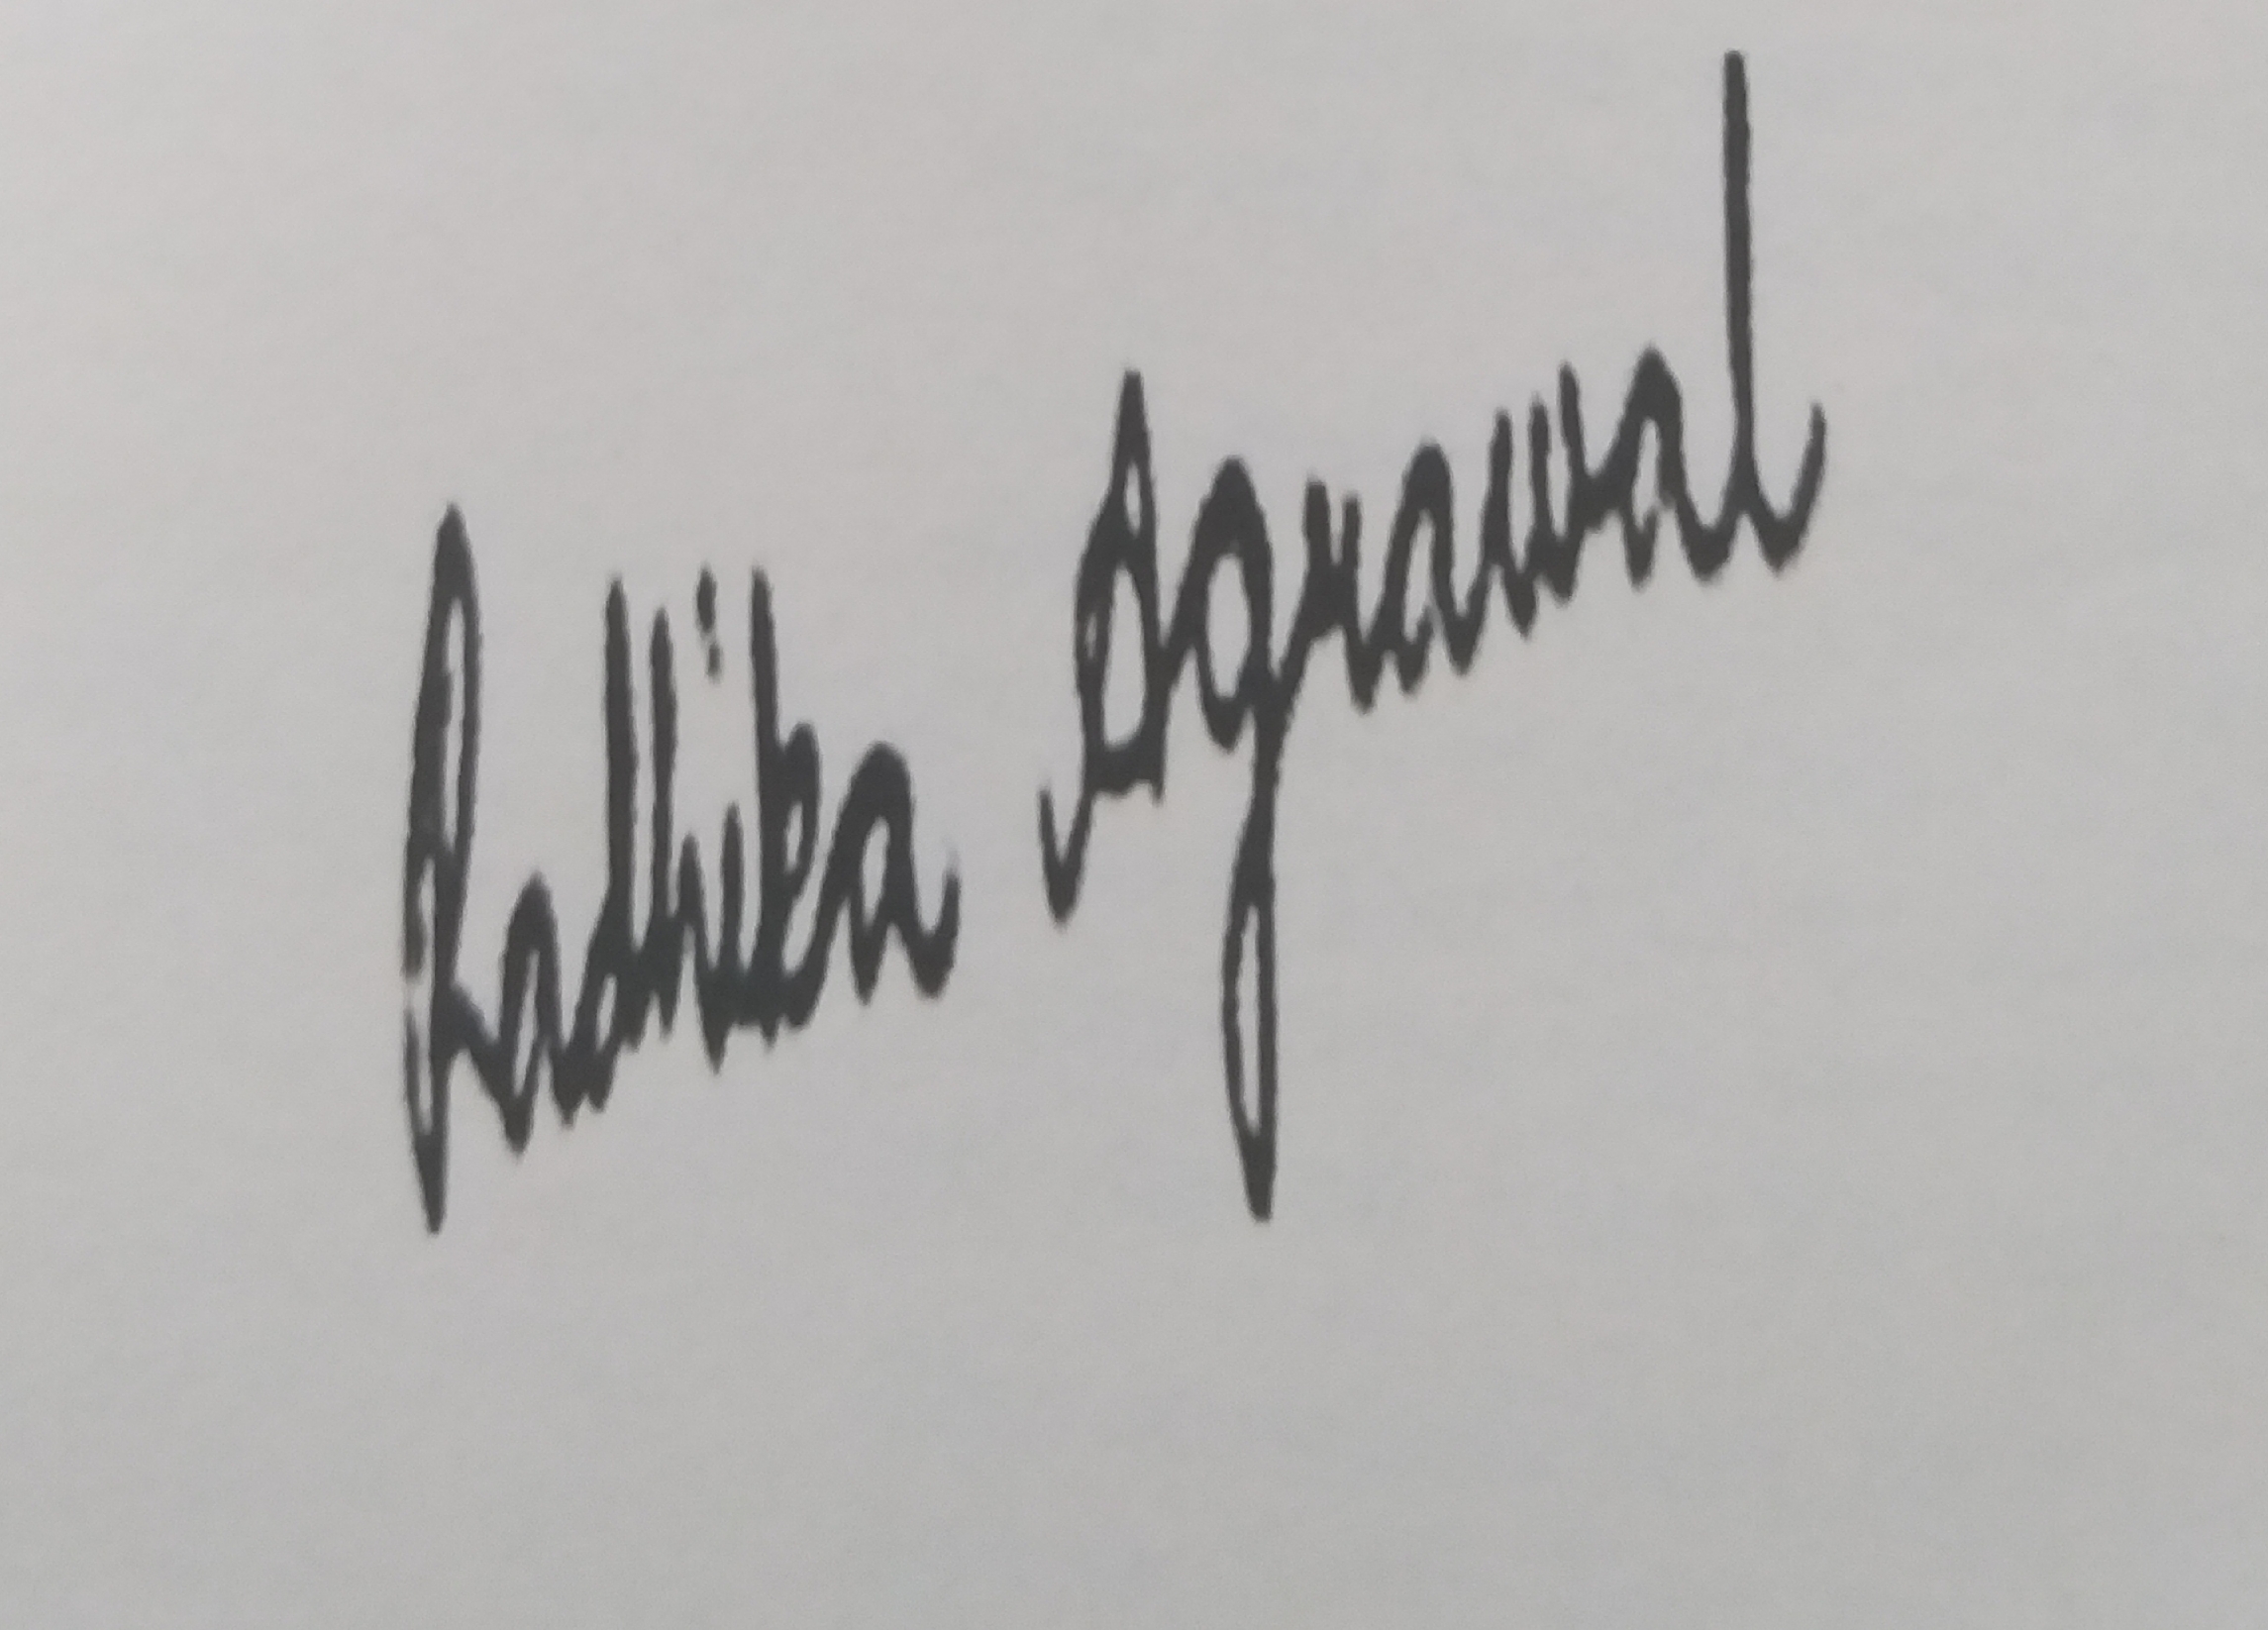 Radhika Agrawal